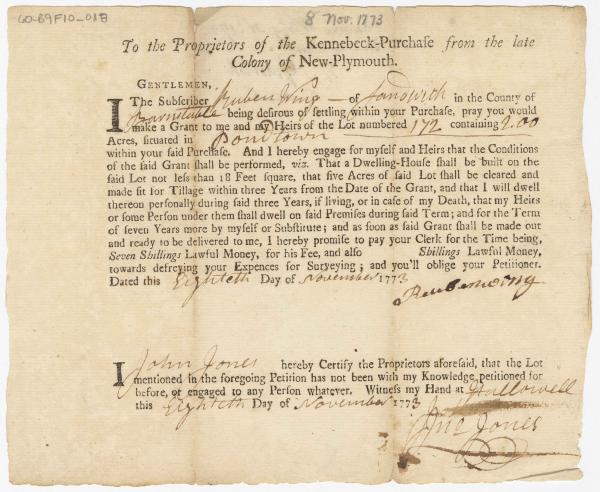 60-B9F10-018
8 Nov. 1773
To the Proprietors of the Kennebeck-Purchase from the late
Colony of New-Plymouth.
GENTLEMEN,
I The Subscriber Reuben Wing of Sandwich in the County of
Barnstable being desirous of settling within your Purchase, pray you would
make a Grant to me and my Heirs of the Lot numbered 172 containing 200
Acres, situated in Pondtown
within your said Purchase. And I hereby engage for myself and Heirs that the Conditions
of the said Grant shall be performed, viz. That a Dwelling-House shall be built on the
said Lot not less than 18 Feet square, that five Acres of said Lot shall be cleared and
made fit for Tillage within three Years from the Date of the Grant, and that I will dwell
thereon personally during said three Years, if living, or in case of my Death, that my Heirs
or some Person under them shall dwell on said Premises during said Term; and for the Term
of seven Years more by myself or Substitute; and as soon as said Grant shall be made out
and ready to be delivered to me, I hereby promise to pay your Clerk for the Time being,
Seven Shillings Lawful Money, for his Fee, and also Shillings Lawful Money,
towards defreying your Expences for Surveying; and you'll oblige your Petitioner.
Dated this Eighteth Day of November 1773
Reuben wing
I John Jones hereby Certify the Proprietors aforesaid, that the Lot
mentioned in the foregoing Petition has not been with my Knowledge petitioned for
before, or engaged to any Person whatever. Witness my Hand at Hallowell
this Eighteth Day of November 1773
Jno Jones